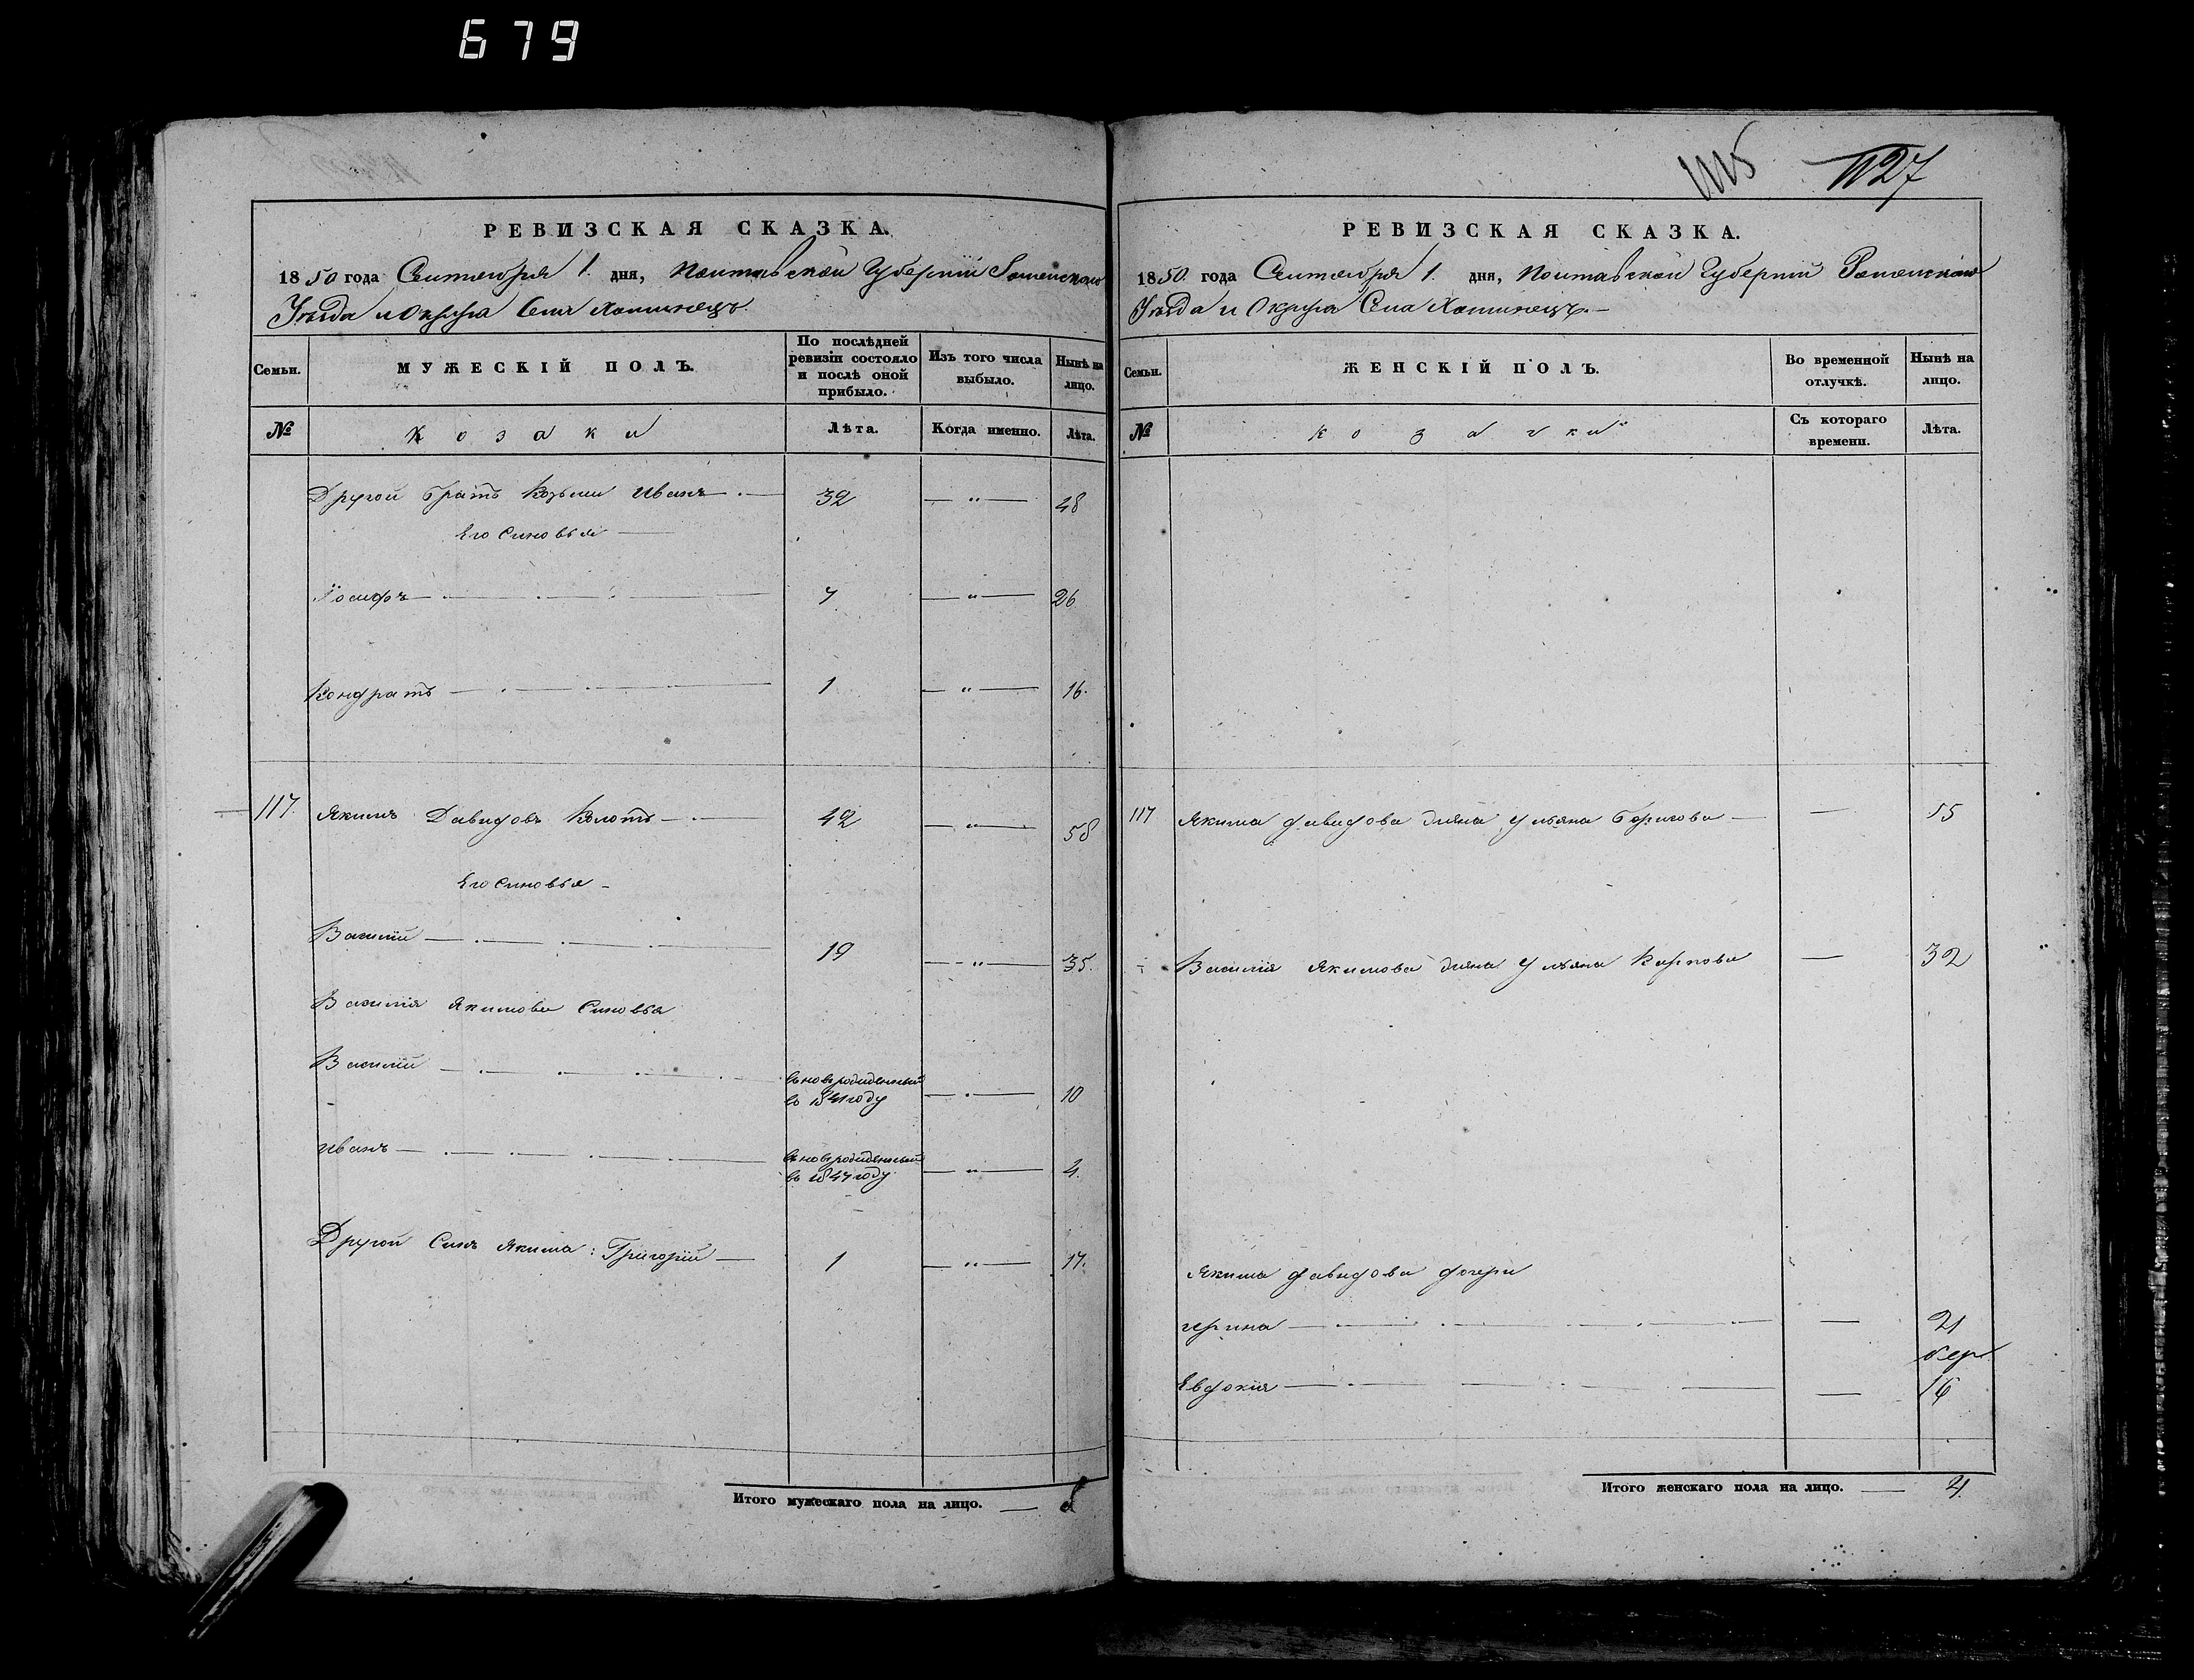 679
РЕВИЗСКАЯ СКАЗКА.
1850 года Сентября 1. дня, Полтавской Губернии Роменскаго
Уѣзда и Округа Села
Семьи.
МУЖЕСКІЙ ПОЛЪ.
По послѣдней ревизіи состояло и послѣ оной прибыло.
Изъ того числа выбыло.
Нынѣ на лицо.
№
Козаки
Лѣта.
Когда именно.
Лѣта.
Другой братъ Козьми Иванъ 32 — " — 48
Его Синовья
Іосифъ 7 — " — 26
Кондратъ 1 — " — 16.
117. Якимъ Давидовъ Колотъ 42 — " — 58
Его Синовья
Василій 19 — " — 35.
Василія Якимова Синовья
Василій въ 1841 году — " — 10
Иванъ въ 1847 году — " — 4.
Другой Синъ Якима: Григорій 1 — " — 17.
Итого мужескаго пола на лицо. — 8
1127
РЕВИЗСКАЯ СКАЗКА.
1850 года Сентября 1. дня, Полтавской Губерніи Роменскаго
Уѣзда и Округа Села
Семьи.
ЖЕНСКІЙ ПОЛЪ.
Во временной отлучкѣ.
Нынѣ на лицо.
№
Козачки
Съ котораго времени.
Лѣта.
117 Якима Давидова жена Ульяна — 55
Василія Якимова жена Ульяна Карпова — 32
Якима Давидова дочери
Ирина — 21
Евдокия — 16
Итого женскаго пола на лицо. — 4.